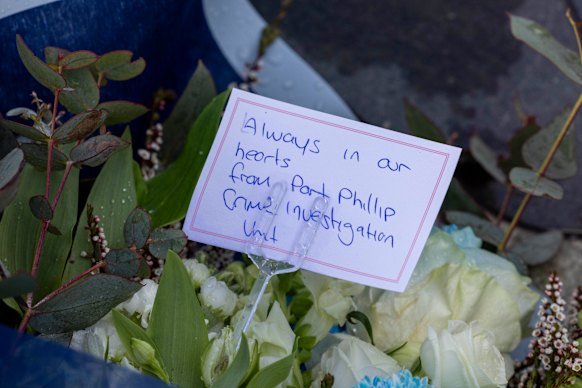 Always in our
hearts
from Port Phillip
Crime Investigation
Unit